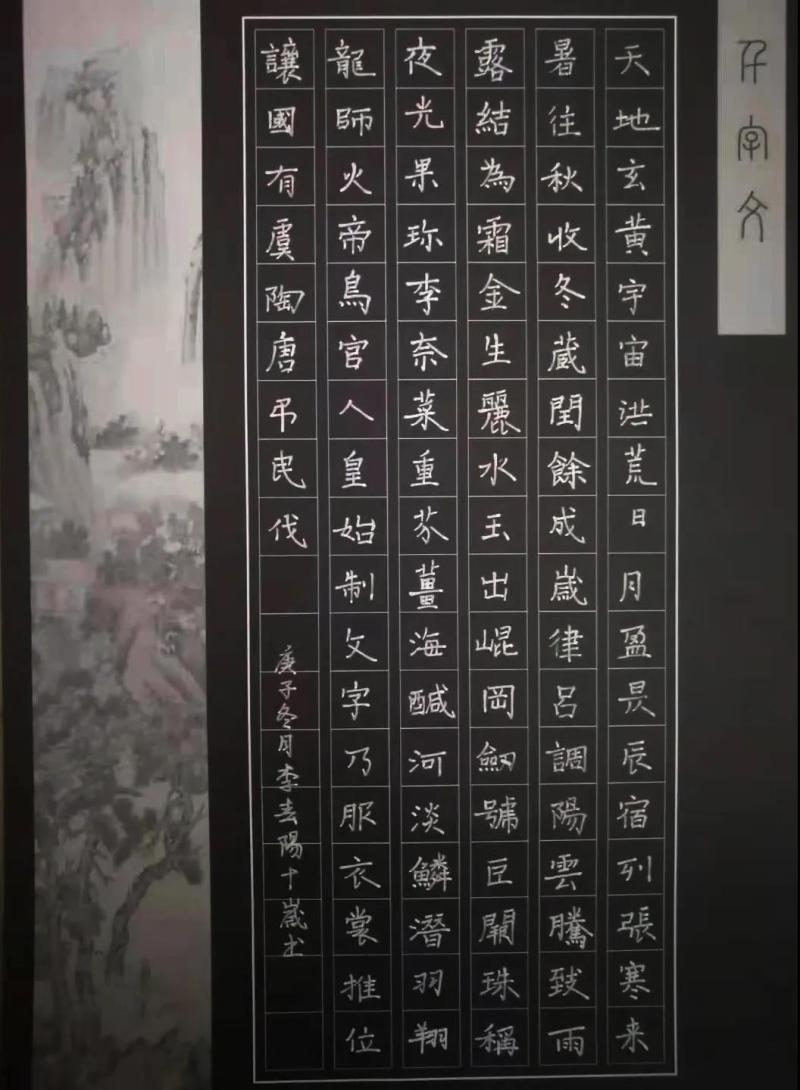 千字文
天地玄黃宇宙洪荒日月盈昃辰宿列張寒来
暑往秋收冬藏閏餘成歲律呂調陽雲騰致雨
露結為霜金生麗水玉出崐岡劔號巨闕珠稱
夜光果珎李奈菜重芥薑海醎河淡鱗潛羽翔
龍師火帝鳥官人皇始制文字乃服衣裳推位
讓國有虞陶唐弔民伐
庚子冬月李春陽十歲书